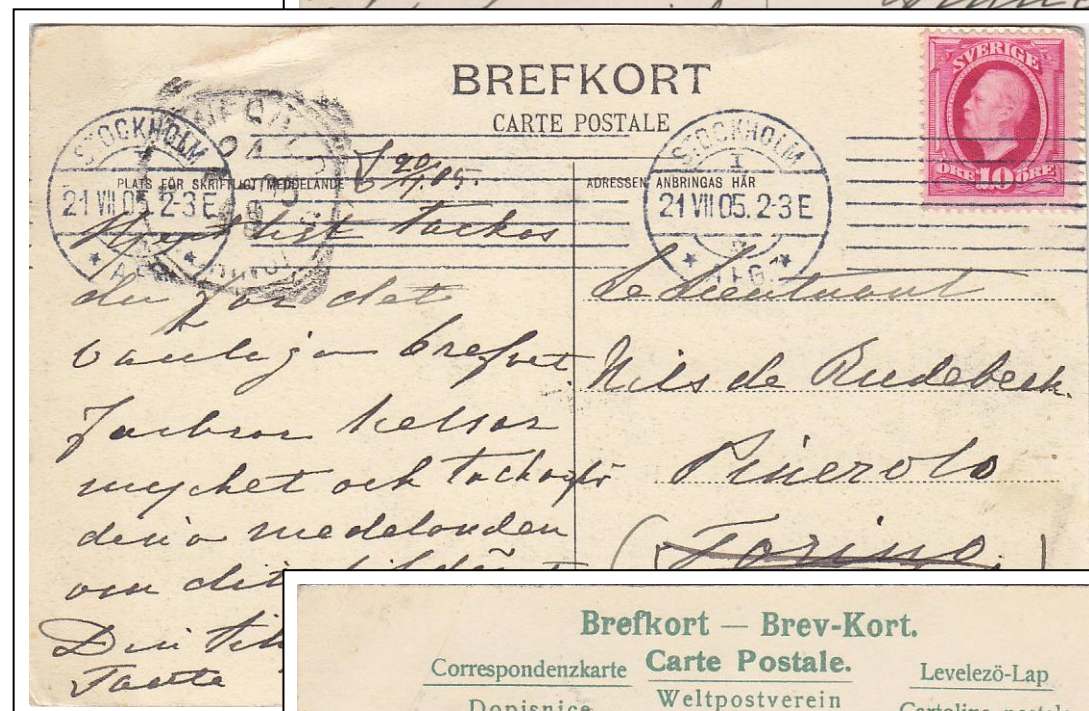 BREFKORT
CARTE POSTALE
SVERIGE
ÖRE 10 ÖRE
STOCKHOLM
21 VII 05. 2-3 E
STOCKHOLM
1
21 VII 05. 2-3 E
PLATS FÖR SKRIFTLIGT MEDDELANDE
ADRESSEN ANBRINGAS HÄR
tackas
du för det
brefvet.
Farbror helsar
mycket och tackar för
dina medelanden
om dit
Din
Tante
Nils de Rudebeck.
Pinerolo
(Torino.)
Brefkort — Brev-Kort.
Correspondenzkarte Carte Postale. Levelezö-Lap
Dopisnice Weltpostverein Cartolina postale